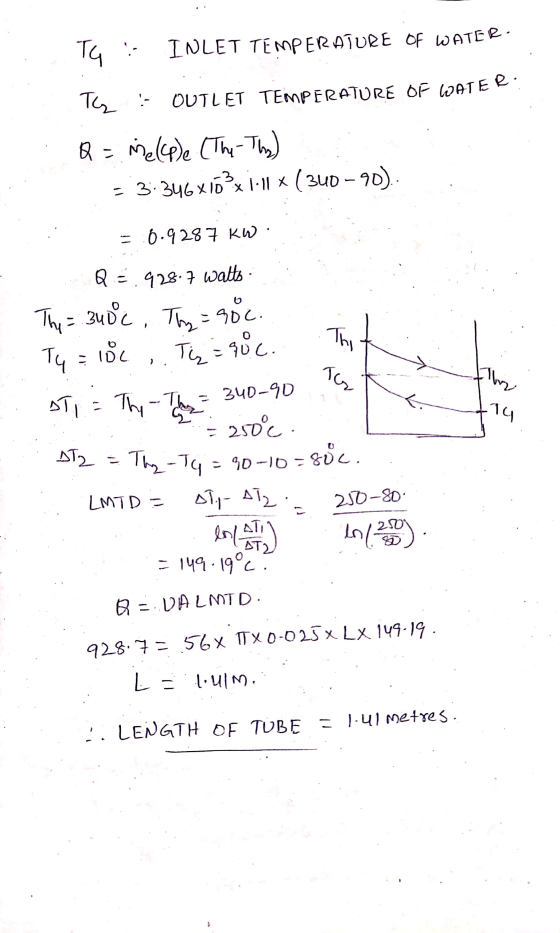 TC1 :- INLET TEMPERATURE OF WATER.
TC2 :- OUTLET TEMPERATURE OF WATER.
Q = ṁe(Cp)e (Th1-Th2)
= 3.346x10^-3 x 1.11 x (340-90).
= 0.9287 KW.
Q = 928.7 watts.
Th1 = 340°C, Th2 = 90°C.
TC1 = 10°C, TC2 = 90°C.
ΔT1 = Th1-TC2 = 340-90
= 250°C.
ΔT2 = Th2-TC1 = 90-10 = 80°C.
Th1
TC2
Th2
TC1
LMTD = ΔT1-ΔT2 / ln(ΔT1/ΔT2) = 250-80 / ln(250/80).
= 149.19°C.
Q = UALMTD.
928.7 = 56x πx0.025xLx149.19.
L = 1.41m.
∴ LENGTH OF TUBE = 1.41 metres.